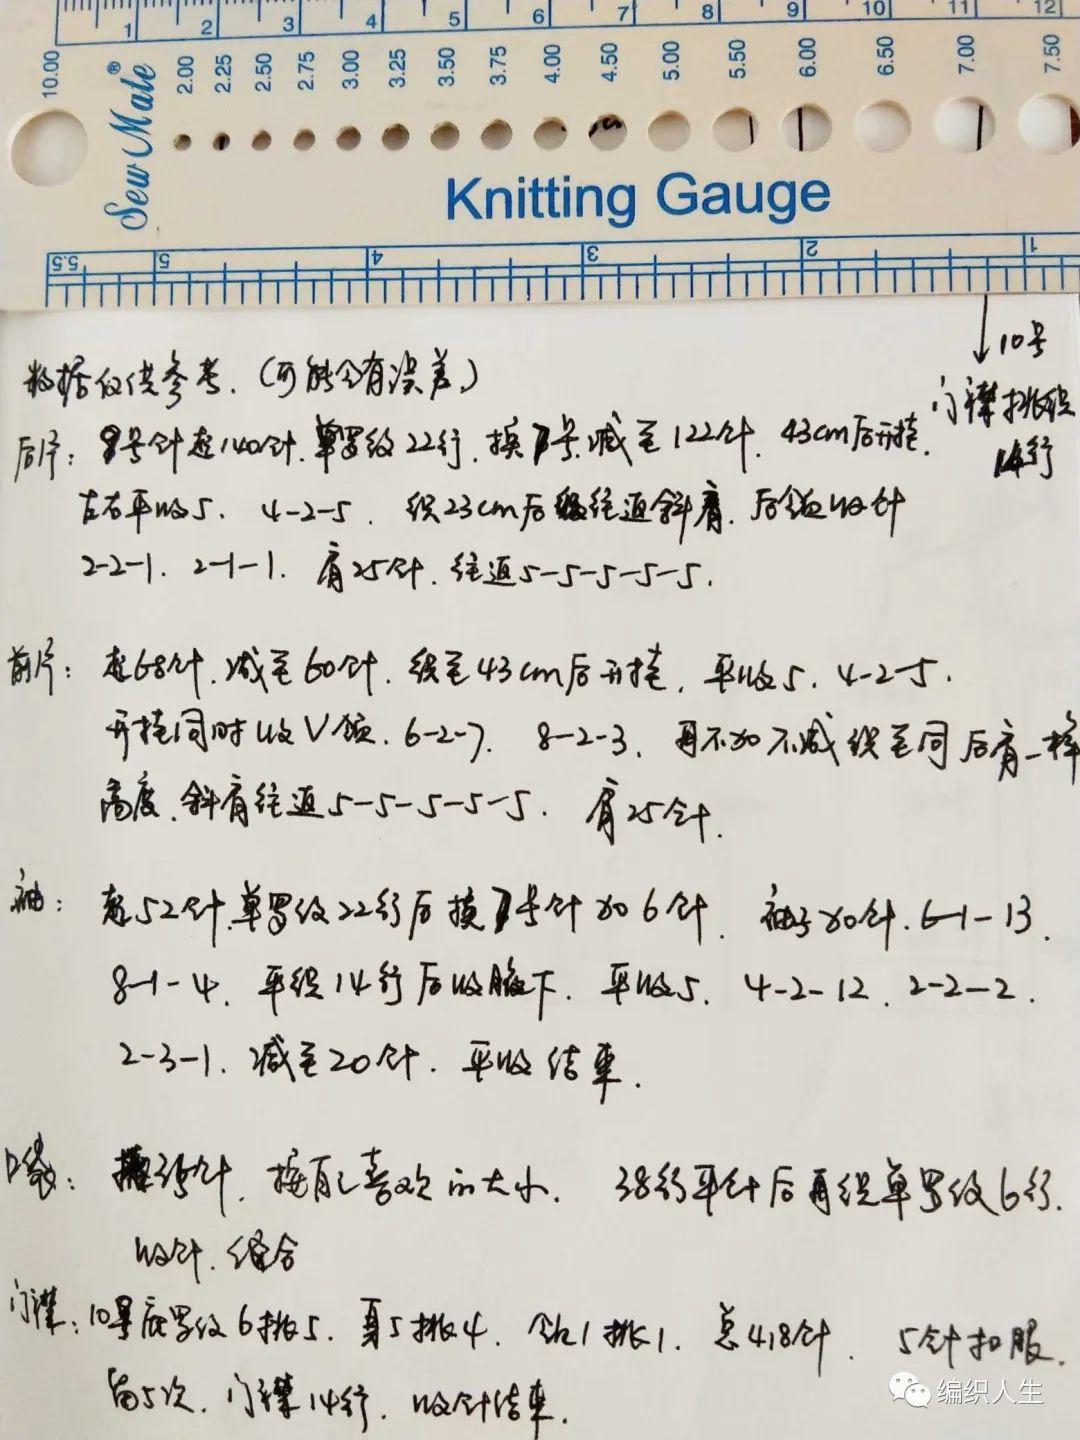 1 2 3 4 5 6 7 8 9 10 11 12
10.00 2.00 2.25 2.50 2.75 3.00 3.25 3.50 3.75 4.00 4.50 5.00 5.50 6.00 6.50 7.00 7.50
Sew Mate®
Knitting Gauge
5.5 5 4 3 2 1
10号
门襟挑织
14行
数据仅供参考.(可能会有误差.)
后片: 9号针起140针.单罗纹22行.换7号.减至122针. 43cm后开挂.
左右平收5. 4-2-5. 织23cm后往返斜肩. 后领收针
2-2-1. 2-1-1. 肩25针. 往返5-5-5-5-5.
前片: 起68针.减至60针. 织至43cm后开挂. 平收5. 4-2-5.
开挂同时收V领. 6-2-7. 8-2-3. 再不加不减织至同后肩一样
高度.斜肩往返5-5-5-5-5. 肩25针.
袖: 起52针.单罗纹22行后换7号针加6针. 袖子加针.6-1-13.
8-1-4. 平织14行后收腋下. 平收5. 4-2-12. 2-2-2.
2-3-1. 减至20针. 平收结束.
口袋: 35针. 按自己喜欢的大小. 38行平针后再织单罗纹6行.
收针.缝合
门襟: 10号底罗纹6挑5. 身5挑4. 领1挑1. 总418针. 5针扣眼.
留5次. 门襟14行. 收针结束.
编织人生